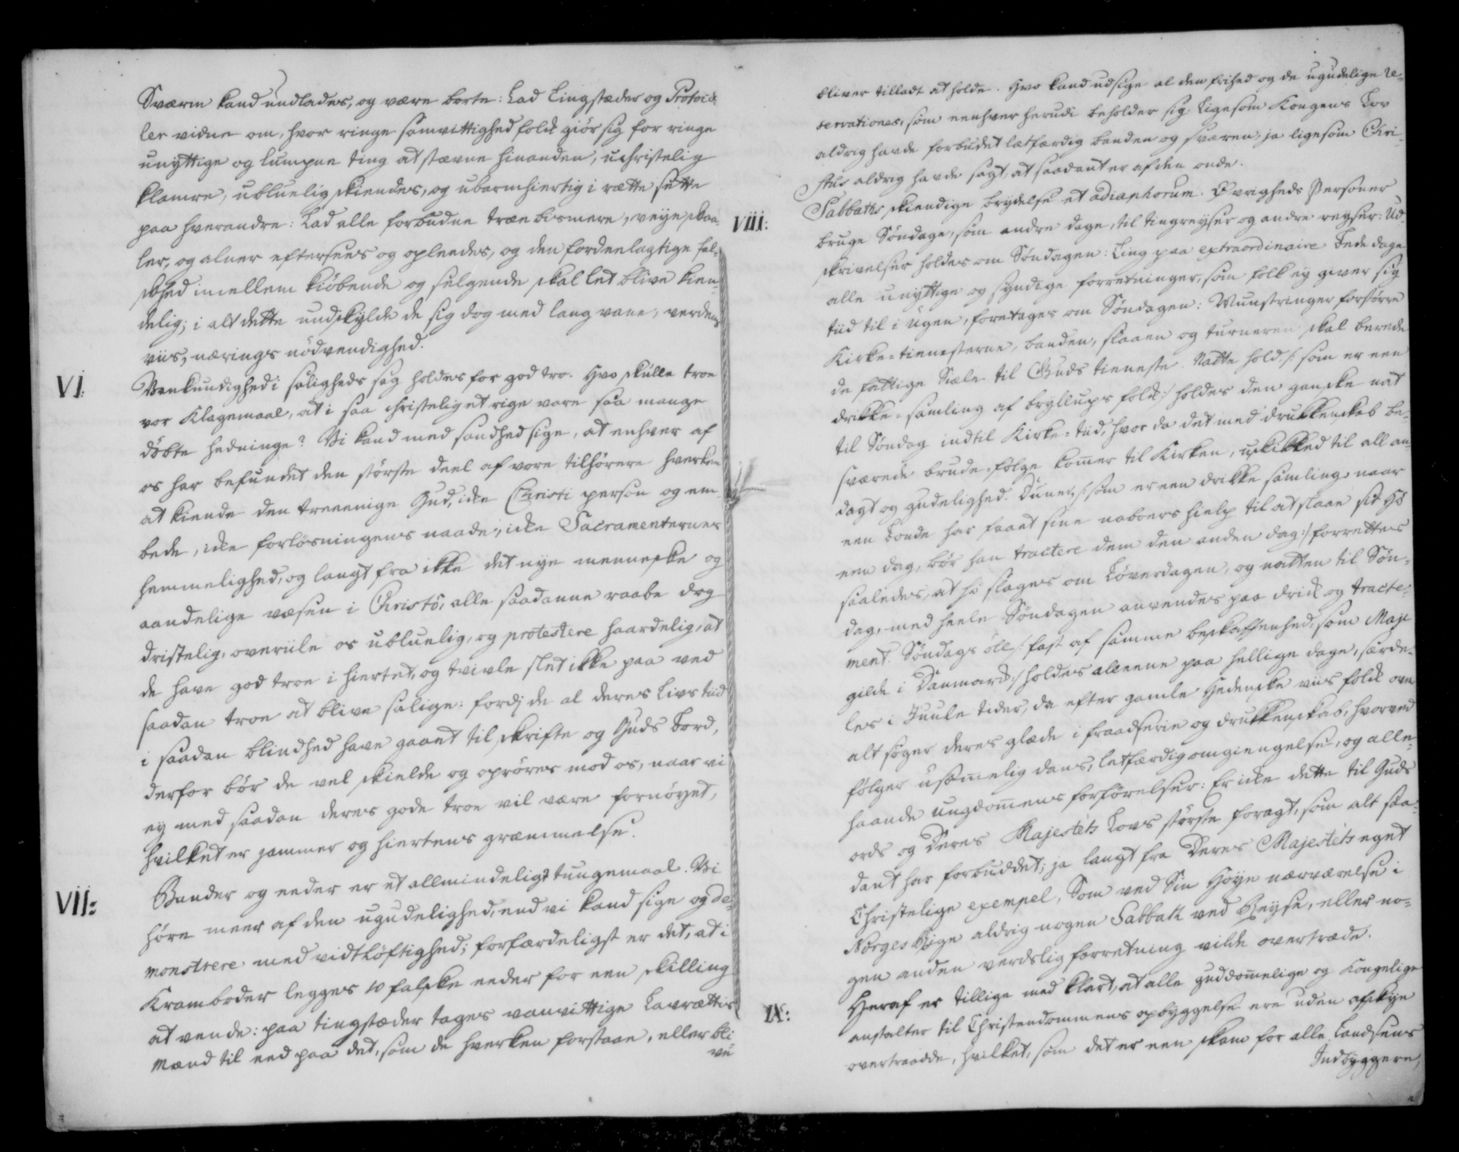 Sværm kand undlades, og være borte: Lad Tingstæder og Protocol-
ler vidne om, hvor ringe samvittighed folk giør sig for ringe
unyttige og lumpne ting at stævne hinanden, uchristelig
klamre, ubluelig skiendes, og ubarmhiertig i rætte sætte
paa hverandre: Lad alle forbudne træe bismere, veye skaa-
ler, og alner eftersees og opleedes, og den fordeelagtige fal-
skhed imellem kiøbende og selgende skal let blive kien-
delig; i alt dette undskylde de sig dog med lang vane, verdens
viis, nærings nødvendighed.
VI: Vankundighed i saligheds sag holdes for god tro. Hvo skulle troe
vor Klagemaal, at i saa christeligt et rige vare saa mange
døbte hedninge? Vi kand med sandhed sige, at enhver af
os har befundet den største deel af vore tilhørere hverken
at kiende den treeenige Gud, icke Christi person og em-
bede, icke forløsningens naade, icke Sacramenternes
hemmelighed, og langt fra ikke det nye menneske og
aandelige væsen i Christo, alle saadanne raabe dog
dristelig, overiile os ubluelig, og protestere haardelig, at
de have god troe i hiertet, og tvivle slet ikke paa ved
saadan troe at blive salige: fordi de al deres livs tiid
i saadan blindhed have gaaet til skrifte og Guds Bord,
derfor bør de vel skielde og oprøres mod os, naar vi
ey med saadan deres gode troe vil være fornøyet,
hvilket er jammer og hiertens græmmelse.
VII: Bander og eeder er et allmindeligt tungemaal. Vi
høre meer af den ugudelighed, end vi kand sige og de-
monstrere med vidtløftighed; forfærdeligst er det, at i
Kramboder legges 10 falske eeder for een skilling
at vende: paa tingstæder tages vanvittige Lavrættis
Mænd til eed paa det, som de hverken forstaae, eller bli
ve
bliver tilladt at holde. Hvo kand udsige al den frihed og de ugudelige re-
servationes, som eenhver herudi beholder sig, ligesom Kongens Lov
aldrig havde forbudet letfærdig banden og sværen; ja ligesom Chri-
stus aldrig havde sagt at saadant er af den onde.
VIII: Sabbaths skiendige brydelse et adiaphorum. Øvrigheds Personer
bruge Søndage, som andre dage, til tingreyser og andre reyser: Ud-
skrivelser holdes om Søndagen: Ting paa extraordinaire Bededage
alle unyttige og syndige forretninger, som folk ey giver sig
tiid til i ugen, foretages om Søndagen: Munstringer forstørre
Kirke-tienesterne, banden, slaaen og turneren skal berede
de fattige Siæle til Guds tieneste. Natte hold /: som er een
drikke-samling af bryllups folk :/ holdes den gandske nat
til Søndag indtil Kirke-tiid, hvor da det med drukkenskab be-
sværede brude-følge kommer til Kirken, uskikked til all an-
dagt og gudelighed. Duner, /: som er een drikke samling naar
een bonde har faaet sine naboers hielp til at slaae sit Hø
een dag, bør han tractere dem den anden dag :/ forrettes
saaledes, at hø slages om Løverdagen, og natten til Søn-
dag, med heele Søndagen anvendes paa drick og tracte-
ment. Søndags øll /: fast af samme beskaffenhed, som Maje
gilde i Danmarck :/ holdes alleene paa hellige dage, særde-
les i Juule tider, da efter gamle Hedenske viis folk over
alt søger deres glæde i fraadserie og drukkenskab, hvorved
følger usømmelig dans, letfærdig omgiengelse, og alle-
haande ungdommens forførelser: Er icke dette til Guds
ords og Deres Majestets Lovs største foragt, som alt saa-
dant har forbuddet; ja langt fra Deres Majestets eget
Christelige exempel, som ved Sin Høye nærværelse i
Norges Rige aldrig nogen Sabbath ved Reyse, eller no-
gen anden verdslig forretning vilde overtræde.
IX: Heraf er tillige med klart, at alle guddommelige og Kongelige
anstalter til Christendommens opbyggelse ere uden afskye
overtraadde, hvilket, som det er een skam for alle Landsens
Indbyggere,